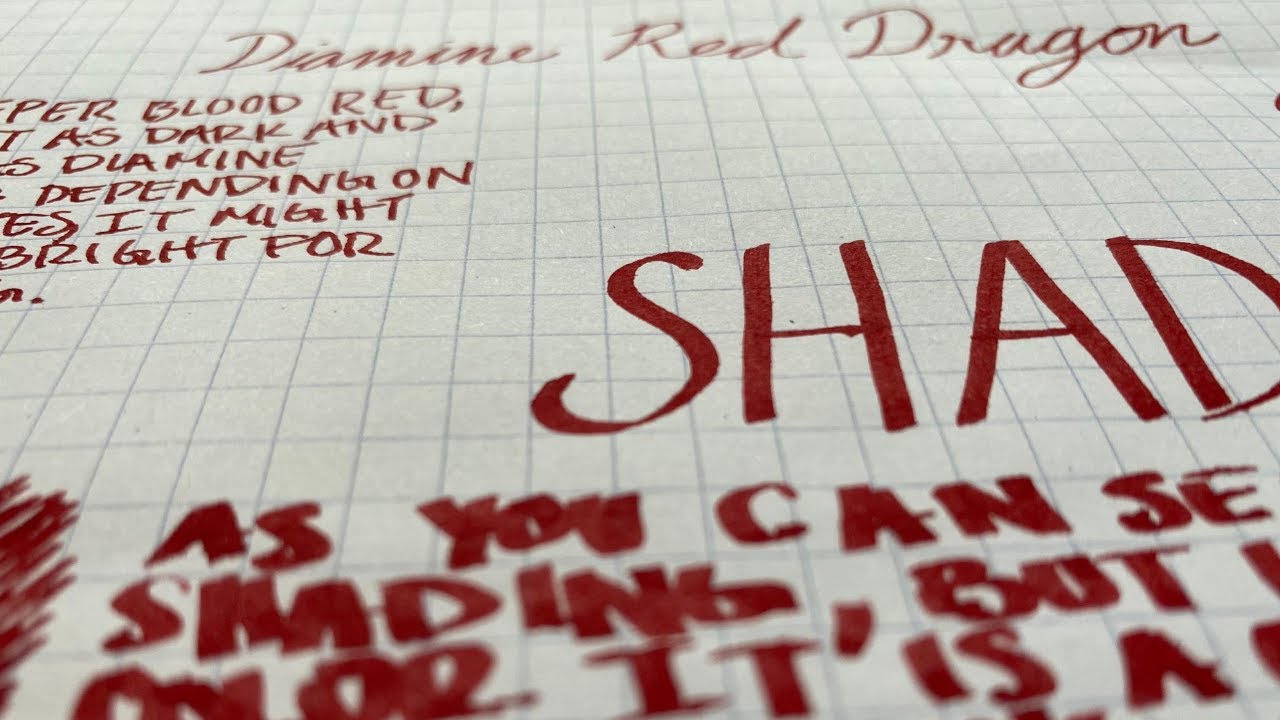 Diamine Red Dragon
EPER BLOOD RED,
T AS DARK AND
ES DIAMINE
DEPENDING ON
ES IT MIGHT
BRIGHT FOR
G.
SHAD
AS YOU CAN SE
SHADING, BUT
COLOR IT'S A